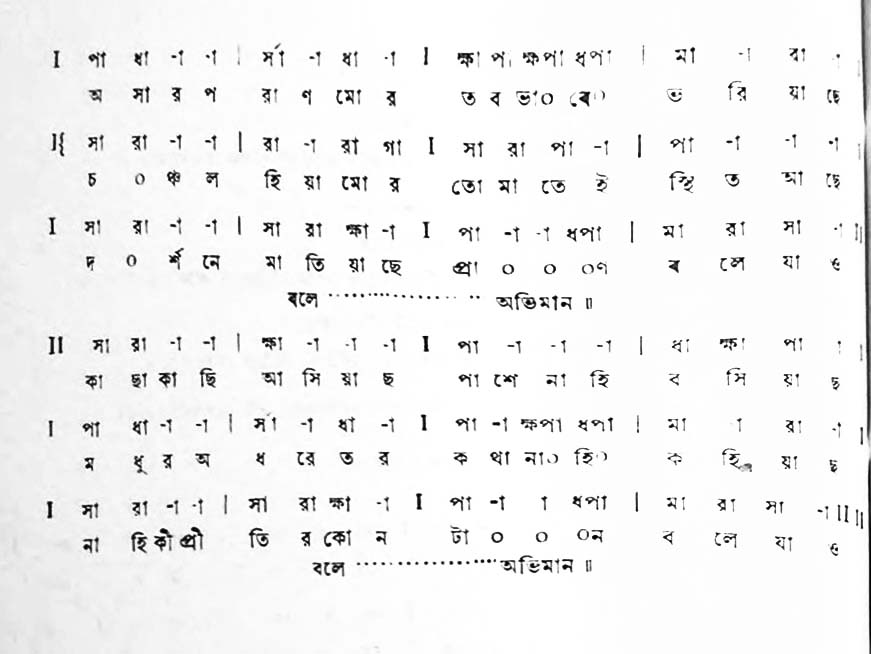 I পা ধা -া -া | র্সা -া ধা -া I ক্ষা পা ক্ষপা ধপা | মা -া রা -া I
অ সা র প রা ণ মো র ত ব ভা০ বে০ ভ রি য়া ছে
I{ সা রা -া -া | রা -া রা গা I সা রা পা -া | পা -া -া -া I
চ ০ ঞ্চ ল হি য়া মো র তো মা তে ই স্থি ত আ ছে
I সা রা -া -া | সা রা ক্ষা -া I পা -া -া ধপা | মা রা সা -া II
দ ০ র্শ নে মা তি য়া ছে প্রা ০ ০ ০ণ ব লে যা ও
বলে ..................... অভিমান ॥
II সা রা -া -া | ক্ষা -া -া -া I পা -া -া -া | ধা ক্ষা পা -া I
কা ছা কা ছি আ সি য়া ছ পা শে না হি ব সি য়া ছ
I পা ধা -া -া | র্সা -া ধা -া I পা -া ক্ষপা ধপা | মা -া রা -া I
ম ধু র অ ধ রে ত র ক থা না০ হি০ ক হি য়া ছ
I সা রা -া -া | সা রা ক্ষা -া I পা -া া ধপা | মা রা সা -া II II
না হি কো প্রী তি র কো ন টা ০ ০ ০ন ব লে যা ও
বলে ..................... অভিমান ॥